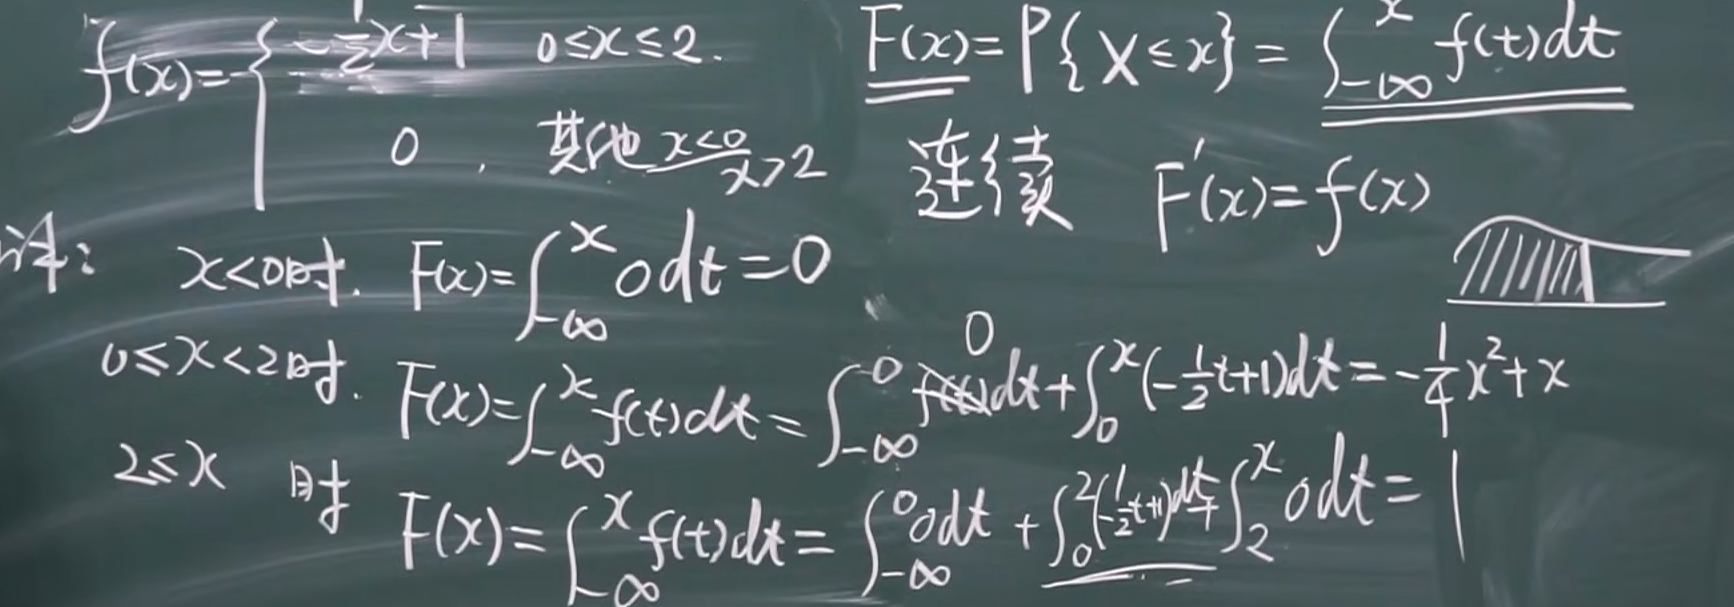 f(x)= { -1/2x+1 0≤x≤2.
0 , 其他 x<0 x>2
F(x)=P{X≤x}=∫_{-∞}^{x} f(t)dt
连续 F'(x)=f(x)
x<0时. F(x)=∫_{-∞}^{x} 0dt=0
0≤x<2时. F(x)=∫_{-∞}^{x} f(t)dt=∫_{-∞}^{0} 0 f(t)dt+∫_{0}^{x}(-1/2t+1)dt=-1/4x²+x
2≤x 时 F(x)=∫_{-∞}^{x} f(t)dt=∫_{-∞}^{0} 0dt+∫_{0}^{2}(-1/2t+1)dt+∫_{2}^{x} 0dt=1